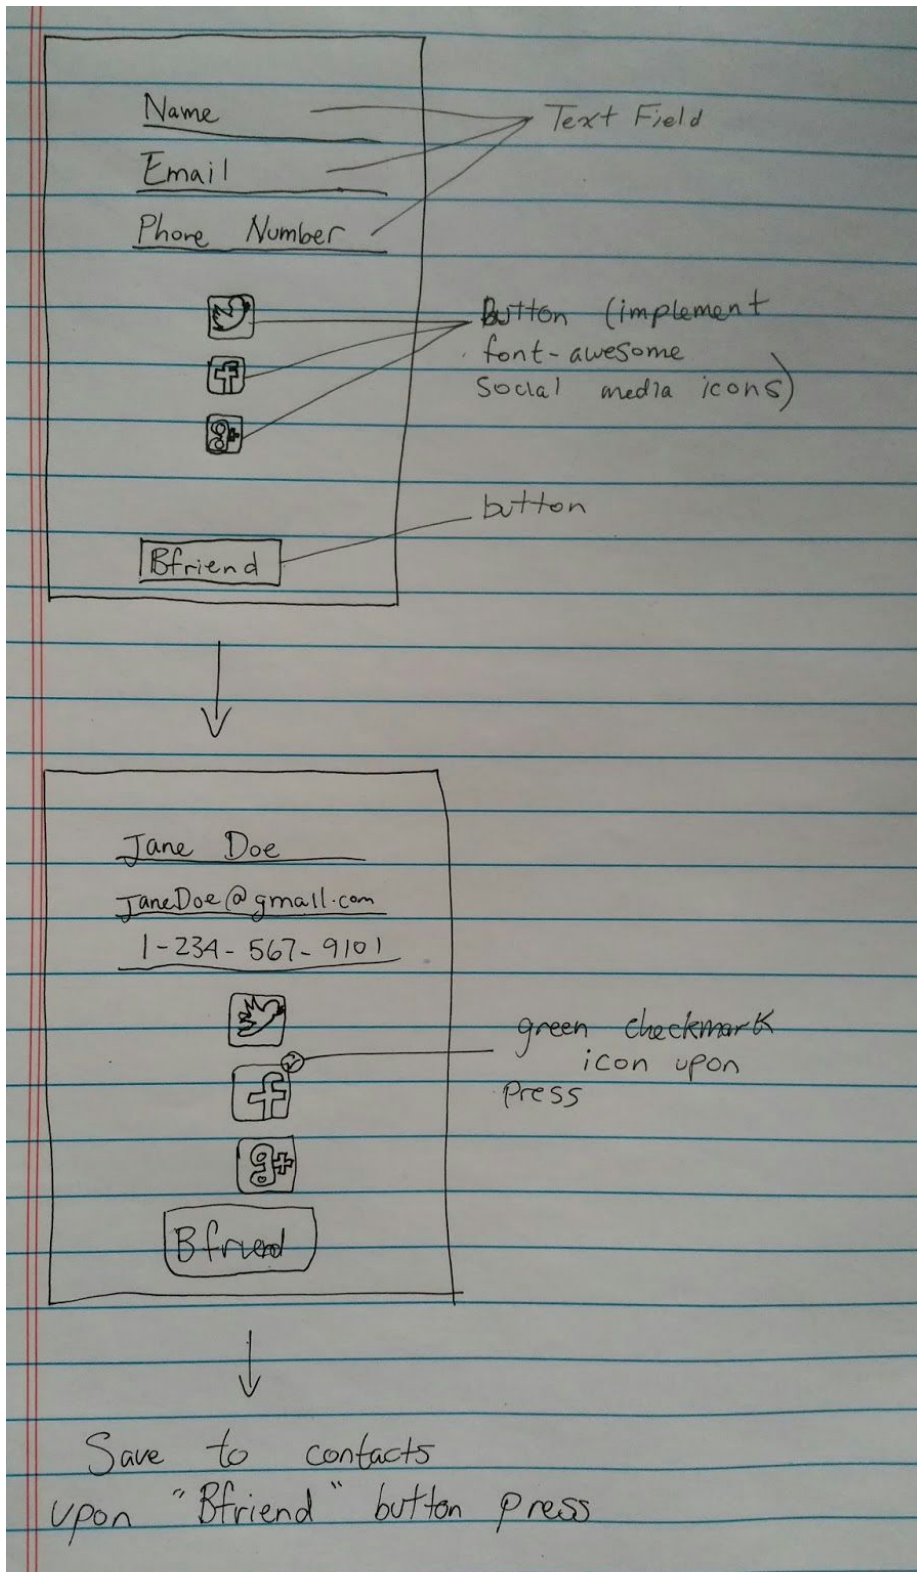 Name
Text Field
Email
Phone Number
Button (implement
font-awesome
social media icons)
f
g+
button
Bfriend
Jane Doe
JaneDoe@gmail.com
1-234-567-9101
green checkmark
icon upon
press
f
g+
Bfriend
Save to contacts
upon "Bfriend" button press